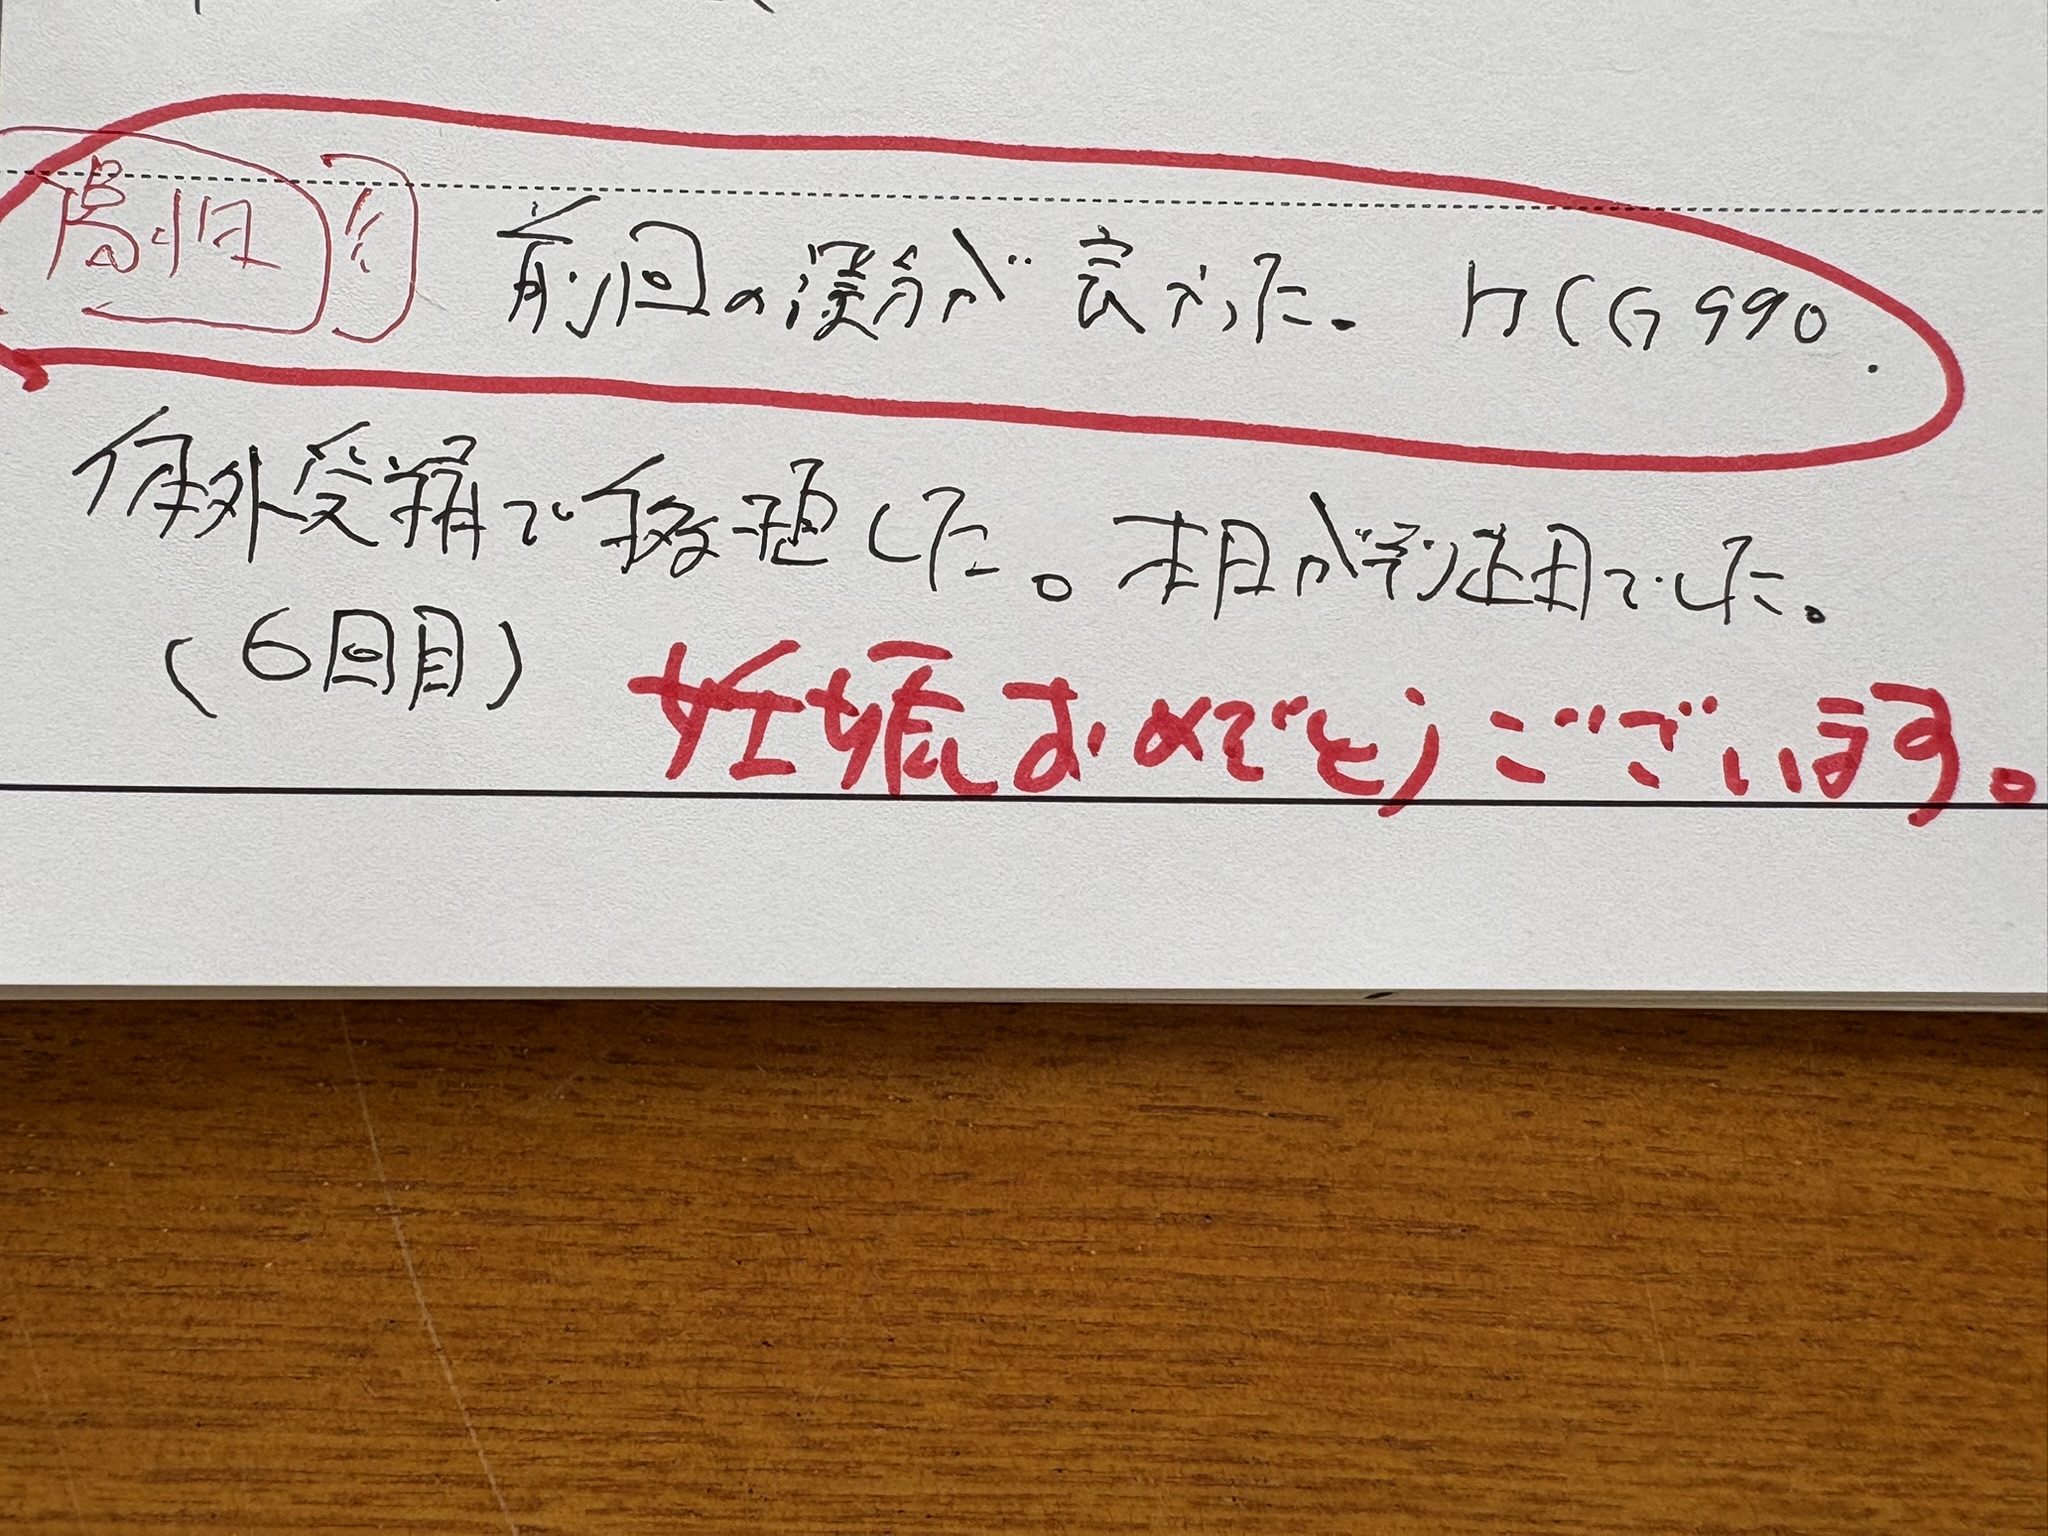 前回の漢方が良かった。 HCG 990.
体外受精で移植した。本日が判定日でした。
(6回目)
妊娠おめでとうございます。